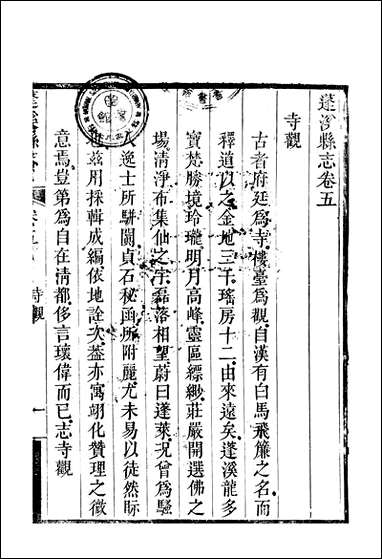 蓬溪縣志卷五
寺觀
古者府廷爲寺樓臺爲觀自漢有白馬飛簾之名而
釋道以之金地三千瑤房十二由來遠矣蓬溪龍多
寶梵勝境玲瓏明月高峰靈區縹緲莊嚴開選佛之
場清淨布集仙之宇磊落相望蔚曰蓬萊况曾爲騷
人逸士所駢闐貞石秘函所附麗尤未易以徒然眎
也茲用採輯成編依地詮次葢亦寓翊化贊理之微
意焉豈第爲自在清都侈言瓌偉而已志寺觀
寺觀
一